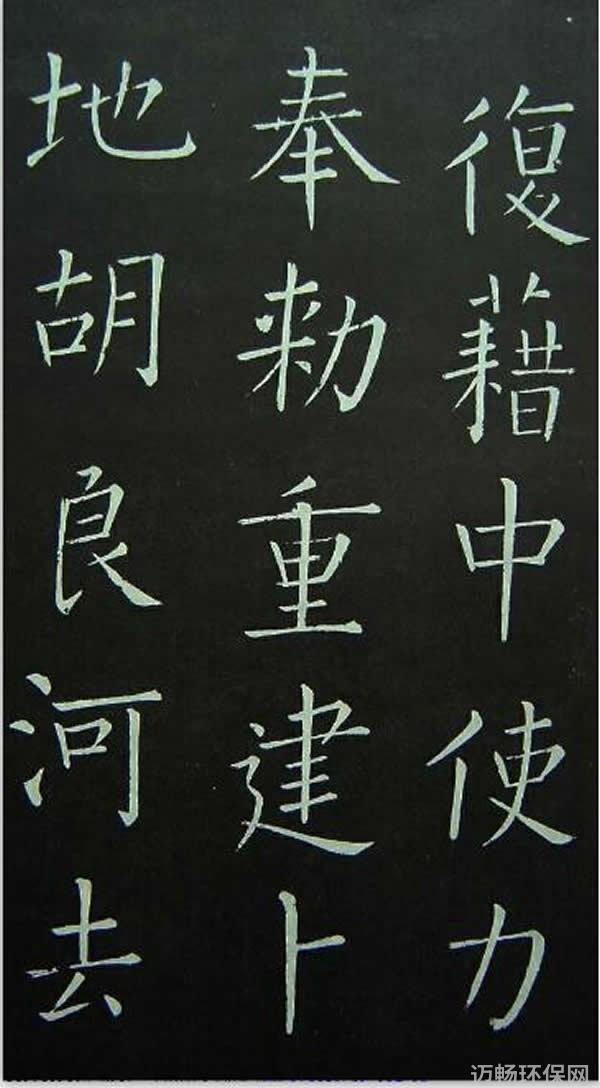 復藉中使力
奉勑重建卜
地胡良河去
迈畅环保网